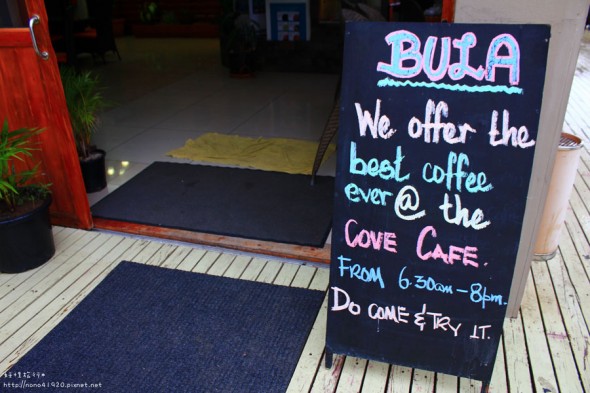 BULA
We offer the
best coffee
ever @ the
COVE CAFE.
FROM 6.30am - 8pm.
DO COME & TRY IT.
http://nono41920.pixnet.net